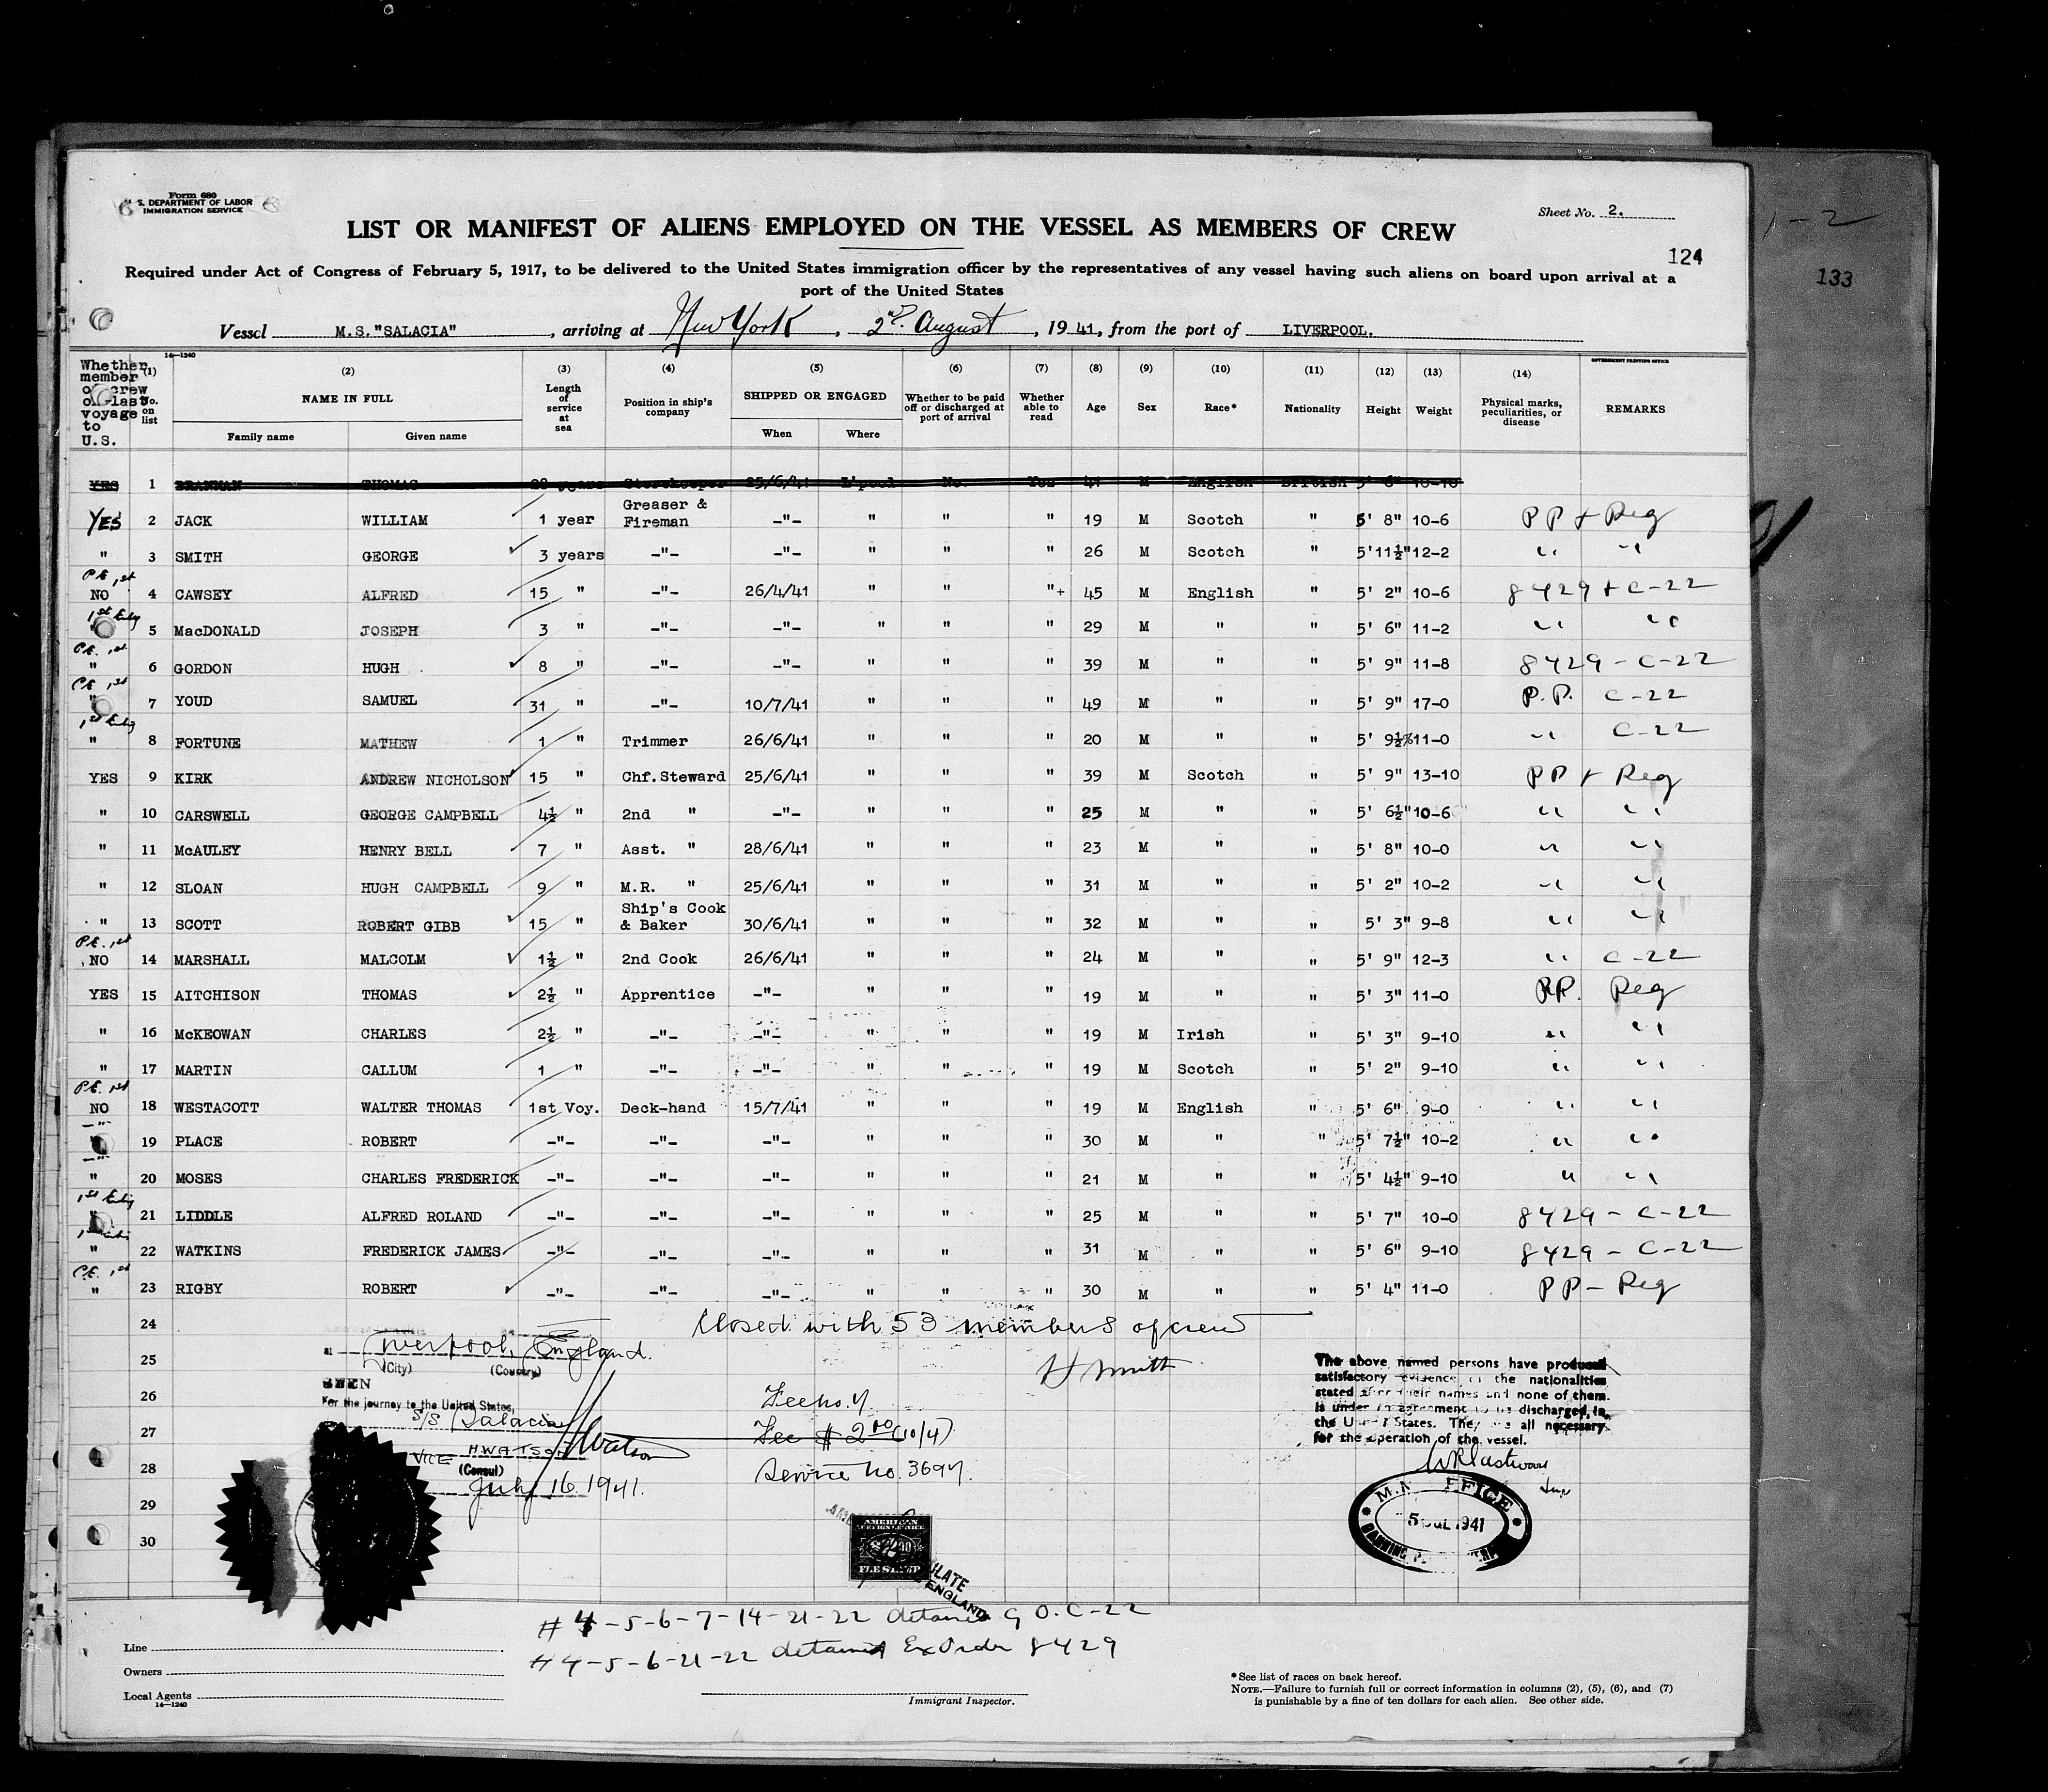 Form 680
U. S. DEPARTMENT OF LABOR
IMMIGRATION SERVICE
Sheet No. 2.
LIST OR MANIFEST OF ALIENS EMPLOYED ON THE VESSEL AS MEMBERS OF CREW
124
1-2
133
Required under Act of Congress of February 5, 1917, to be delivered to the United States immigration officer by the representatives of any vessel having such aliens on board upon arrival at a
port of the United States
Vessel M.S."SALACIA", arriving at New York, 2nd. August, 1941, from the port of LIVERPOOL.
14—1240
GOVERNMENT PRINTING OFFICE
Whether member of crew of last voyage to U.S. (1) No. on list (2) NAME IN FULL Family name Given name (3) Length of service at sea (4) Position in ship's company (5) SHIPPED OR ENGAGED When Where (6) Whether to be paid off or discharged at port of arrival (7) Whether able to read (8) Age (9) Sex (10) Race* (11) Nationality (12) Height (13) Weight (14) Physical marks, peculiarities, or disease REMARKS
YES 1 BRANNAN THOMAS 28 years Storekeeper 25/6/41 L'pool No. Yes 41 M English British 5' 6" 10-10
YES 2 JACK WILLIAM 1 year Greaser & Fireman -"- " " " 19 M Scotch " 5' 8" 10-6 PP + Reg
" 3 SMITH GEORGE 3 years -"- -"- " " " 26 M Scotch " 5'11½" 12-2 " "
P.E. 1st
NO 4 CAWSEY ALFRED 15 " -"- 26/4/41 " " "+ 45 M English " 5' 2" 10-6 8429 + C-22
1st Entry
" 5 MacDONALD JOSEPH 3 " -"- -"- " " " 29 M " " 5' 6" 11-2 " "
P.E. 1st
" 6 GORDON HUGH 8 " -"- -"- " " " 39 M " " 5' 9" 11-8 8429 - C-22
P.E. 1st
" 7 YOUD SAMUEL 31 " -"- 10/7/41 " " " 49 M " " 5' 9" 17-0 P.P. C-22
1st Entry
" 8 FORTUNE MATHEW 1 " Trimmer 26/6/41 " " " 20 M " " 5' 9½" 11-0 " C-22
YES 9 KIRK ANDREW NICHOLSON 15 " Chf. Steward 25/6/41 " " " 39 M Scotch " 5' 9" 13-10 PP + Reg
" 10 CARSWELL GEORGE CAMPBELL 4½ " 2nd " -"- " " " 25 M " " 5' 6½" 10-6 " "
" 11 McAULEY HENRY BELL 7 " Asst. " 28/6/41 " " " 23 M " " 5' 8" 10-0 " "
" 12 SLOAN HUGH CAMPBELL 9 " M.R. " 25/6/41 " " " 31 M " " 5' 2" 10-2 " "
" 13 SCOTT ROBERT GIBB 15 " Ship's Cook & Baker 30/6/41 " " " 32 M " " 5' 3" 9-8 " "
P.E. 1st
NO 14 MARSHALL MALCOLM 1½ " 2nd Cook 26/6/41 " " " 24 M " " 5' 9" 12-3 " C-22
YES 15 AITCHISON THOMAS 2½ " Apprentice -"- " " " 19 M " " 5' 3" 11-0 P.P. Reg
" 16 McKEOWAN CHARLES 2½ " -"- -"- " " " 19 M Irish " 5' 3" 9-10 " "
" 17 MARTIN CALLUM 1 " -"- -"- " " " 19 M Scotch " 5' 2" 9-10 " "
P.E. 1st
NO 18 WESTACOTT WALTER THOMAS 1st Voy. Deck-hand 15/7/41 " " " 19 M English " 5' 6" 9-0 " "
-"-
" 19 PLACE ROBERT -"- -"- -"- " " " 30 M " " 5' 7½" 10-2 " "
-"-
" 20 MOSES CHARLES FREDERICK -"- -"- -"- " " " 21 M " " 5' 4½" 9-10 " "
1st Entry
" 21 LIDDLE ALFRED ROLAND -"- -"- -"- " " " 25 M " " 5' 7" 10-0 8429 - C-22
1st Entry
" 22 WATKINS FREDERICK JAMES -"- -"- -"- " " " 31 M " " 5' 6" 9-10 8429 - C-22
P.E. 1st
" 23 RIGBY ROBERT -"- -"- -"- " " " 30 M " " 5' 4" 11-0 PP - Reg
24 Closed with 53 members of crew
25
26
27
28
29
30
H Smith
at Liverpool, England.
(City) (Country)
SEEN
For the journey to the United States,
S/S Salacia
H Watson
VICE H.WATSON
(Consul)
July 16 1941.
Fee no. 4
Fee $ 2 00 (10/4)
Service No. 3694
AMERICAN
FEE STAMP
ENGLAND
The above named persons have produced
satisfactory evidence of the nationalities
stated after their names and none of them
is under an agreement to be discharged in
the United States. They are all necessary
for the operation of the vessel.
M.M. OFFICE
15 JUL 1941
# 4-5-6-7-14-21-22 detained G O. C-22
# 4-5-6-21-22 detained Ex Order 8429
Line
Owners
Local Agents
14—1240
Immigrant Inspector.
*See list of races on back hereof.
NOTE.—Failure to furnish full or correct information in columns (2), (5), (6), and (7)
is punishable by a fine of ten dollars for each alien. See other side.